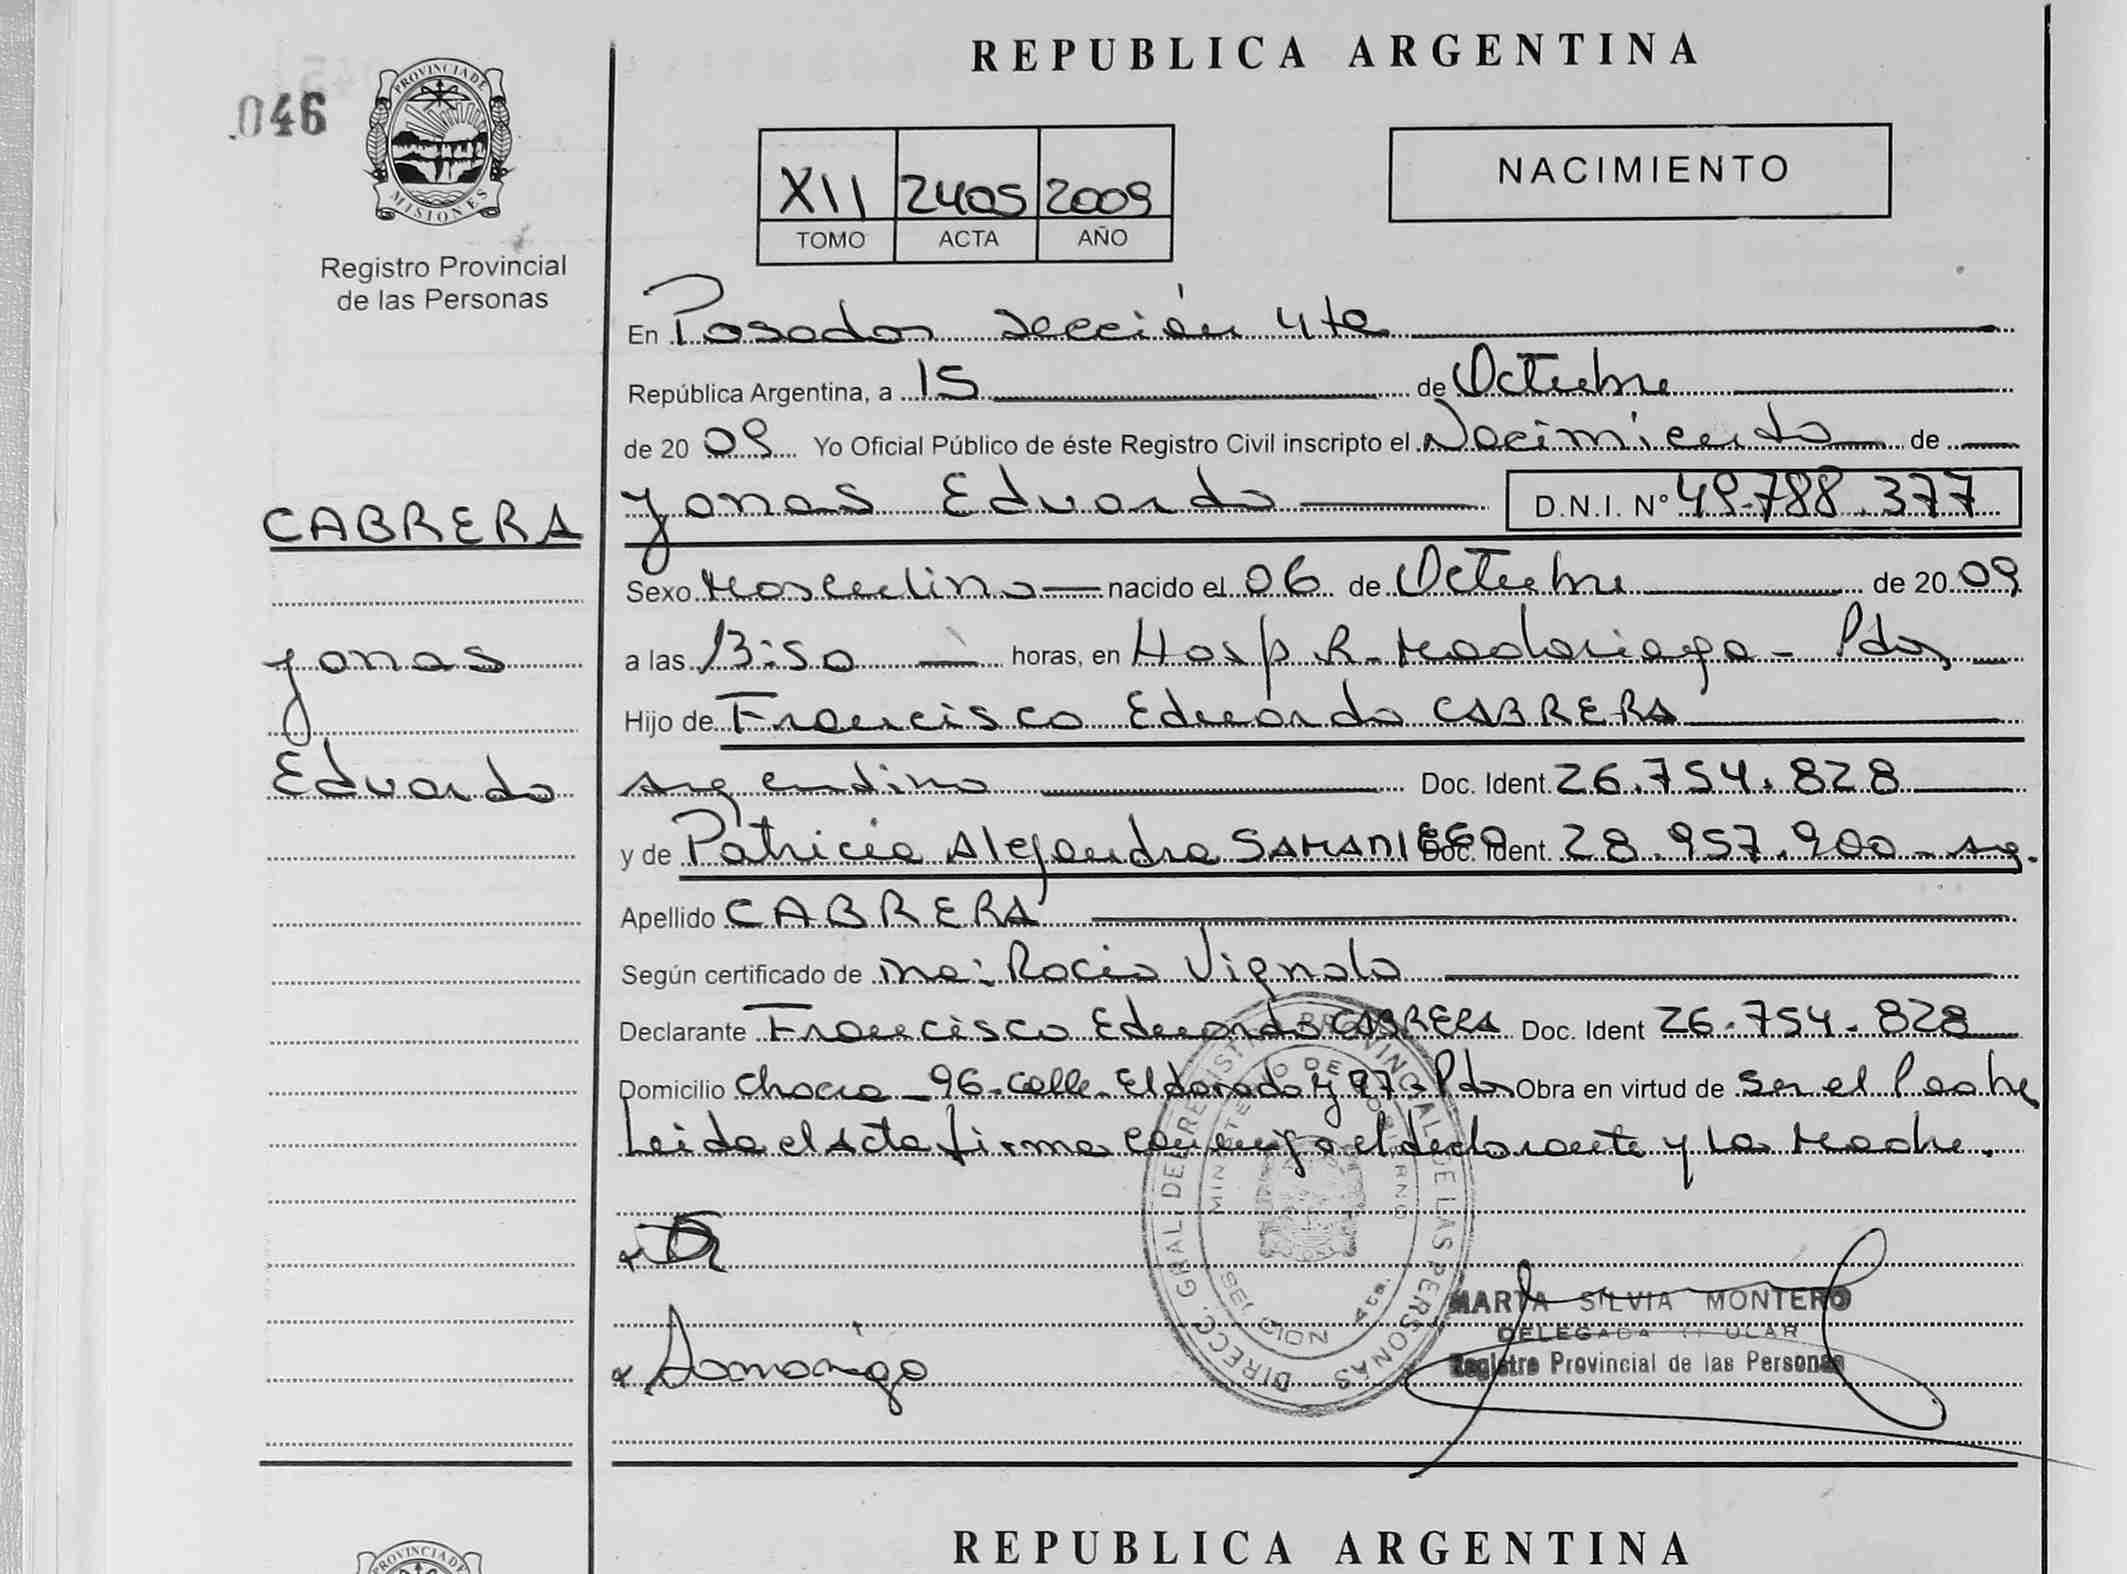 REPUBLICA ARGENTINA
046
PROVINCIA DE
MISIONES
Registro Provincial
de las Personas
XII 2405 2009
TOMO ACTA AÑO
NACIMIENTO
En Posadas sección 4ta
República Argentina, a 15 de Octubre
de 20 09 Yo Oficial Público de éste Registro Civil inscripto el Nacimiento de
CABRERA
Jonas
Eduardo
Jonas Eduardo D.N.I. Nº 49.788.377
Sexo Masculino nacido el 06 de Octubre de 20 09
a las 13:50 horas, en Hosp R. Madariaga - Pdas
Hijo de Francisco Eduardo CABRERA
argentino Doc. Ident. 26.754.828
y de Patricia Alejandra SAMANIEGO Doc. Ident. 28.957.900 - arg.
Apellido CABRERA
Según certificado de Rocio Vignolo
Declarante Francisco Eduardo CABRERA Doc. Ident 26.754.828
Domicilio Chacra - 96 - calle - Eldorado y 97 - Pdas Obra en virtud de ser el Padre
Leida el Acta firma conmigo el declarante y la Madre.
DIRECC. GRAL. DEL REGISTRO PROVINCIAL DE LAS PERSONAS
MINISTERIO DE GOBIERNO
SECCION 4ta.
MARTA SILVIA MONTERO
DELEGADA TITULAR
Registro Provincial de las Personas
REPUBLICA ARGENTINA
PROVINCIA DE